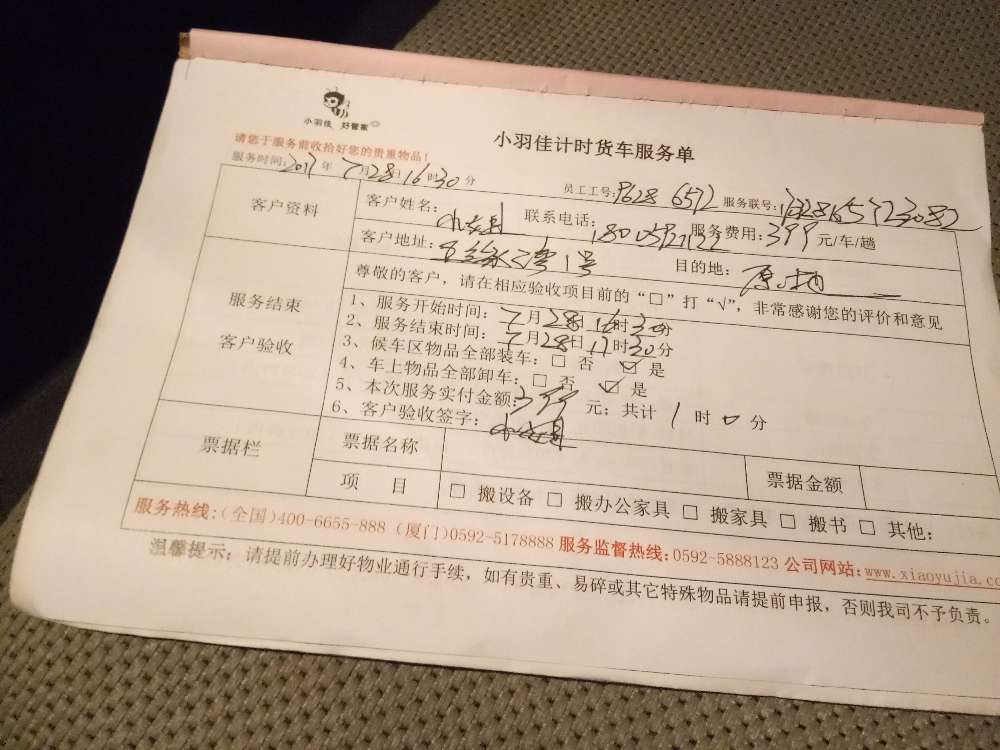 小羽佳 好管家
小羽佳计时货车服务单
请您于服务前收拾好您的贵重物品！
服务时间：2017年7月28日16时30分
员工工号：8628 6572 服务联号：
客户资料
客户姓名： 联系电话： 服务费用：399元/车/趟
客户地址： 1号 目的地：
服务结束
客户验收
尊敬的客户，请在相应验收项目前的“□”打“√”，非常感谢您的评价和意见
1、服务开始时间：7月28日16时30分
2、服务结束时间：7月28日17时30分
3、候车区物品全部装车：□ 否 ☑ 是
4、车上物品全部卸车：□ 否 ☑ 是
5、本次服务实付金额：399元；共计 1 时 0 分
6、客户验收签字：
票据栏
票据名称
票据金额
项 目
□ 搬设备 □ 搬办公家具 □ 搬家具 □ 搬书 □ 其他：
服务热线：(全国)400-6655-888 (厦门)0592-5178888 服务监督热线：0592-5888123 公司网站：www.xiaoyujia.co
温馨提示：请提前办理好物业通行手续，如有贵重、易碎或其它特殊物品请提前申报，否则我司不予负责。